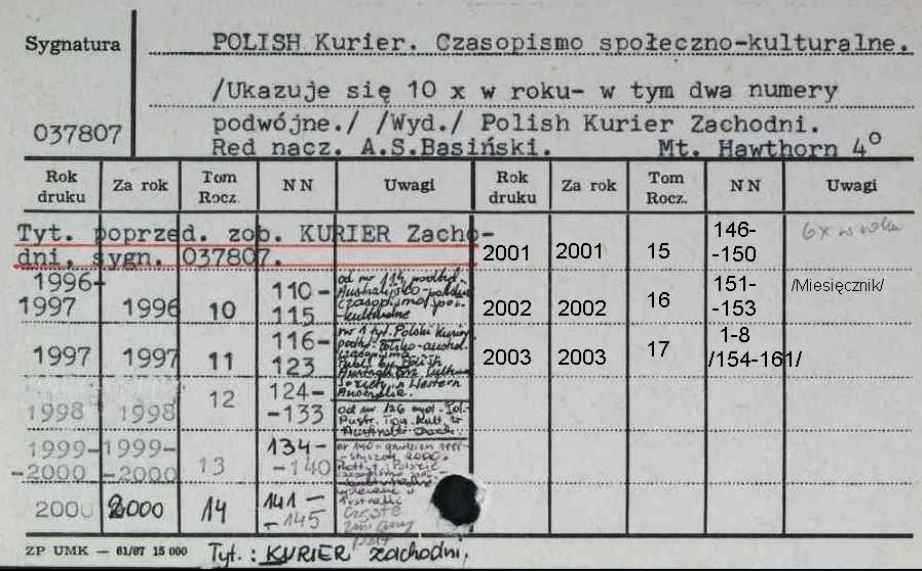 Sygnatura
037807
POLISH Kurier. Czasopismo społeczno-kulturalne.
/Ukazuje się 10 x w roku- w tym dwa numery
podwójne./ /Wyd./ Polish Kurier Zachodni.
Red nacz. A.S.Basiński. Mt. Hawthorn 4°
Rok druku Za rok Tom Rocz. NN Uwagi Rok druku Za rok Tom Rocz. NN Uwagi
Tyt. poprzed. zob. KURIER Zacho-
dni, sygn. 037807.
1996-1997 1996 10 110-115 od nr 114 podtyt. Australijsko-polskie czasopismo społ.-kulturalne
1997 1997 11 116-123 Polski Kurier
1998 1998 12 124-
-133 od nr 126
1999-
-2000 1999-
-2000 13 134-
-140
2000 2000 14 141-
-145 Częste zmiany
2001 2001 15 146-
-150 6x w roku
2002 2002 16 151-
-153 /Miesięcznik/
2003 2003 17 1-8
/154-161/
ZP UMK — 61/87 15 000
Tyt.: KURIER zachodni,